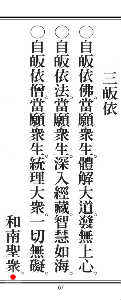 三皈依
〇自皈依佛。當願衆生。體解大道。發無上心。
〇自皈依法。當願衆生。深入經藏。智慧如海。
〇自皈依僧。當願衆生。統理大衆。一切無礙。
和南聖衆。